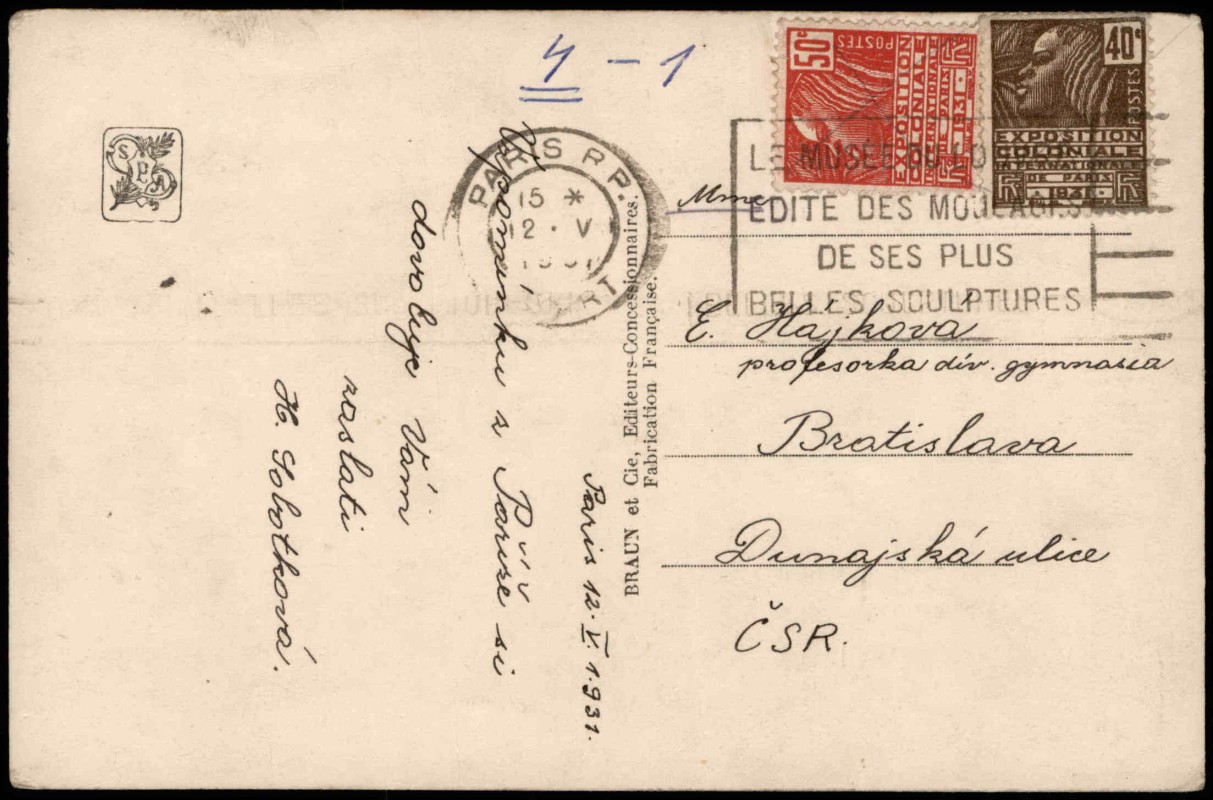 4 - 1
50c
POSTES
EXPOSITION
COLONIALE
INTERNATIONALE
DE PARIS
1931
40c
POSTES
EXPOSITION
COLONIALE
INTERNATIONALE
DE PARIS
1931
SPA
PARIS R.P.
15 *
2 · V
DÉPART
LE MUSÉE DU
EDITE DES MOULAGES
DE SES PLUS
BELLES SCULPTURES
Paris 12. V. 1931.
Vzpomínku z Paříže si
dovoluje Vám
zaslati
H. Sobotková.
BRAUN et Cie, Editeurs-Concessionnaires.
Fabrication Française.
Mme
E. Hájkova
profesorka dív. gymnasia
Bratislava
Dunajská ulice
ČSR.